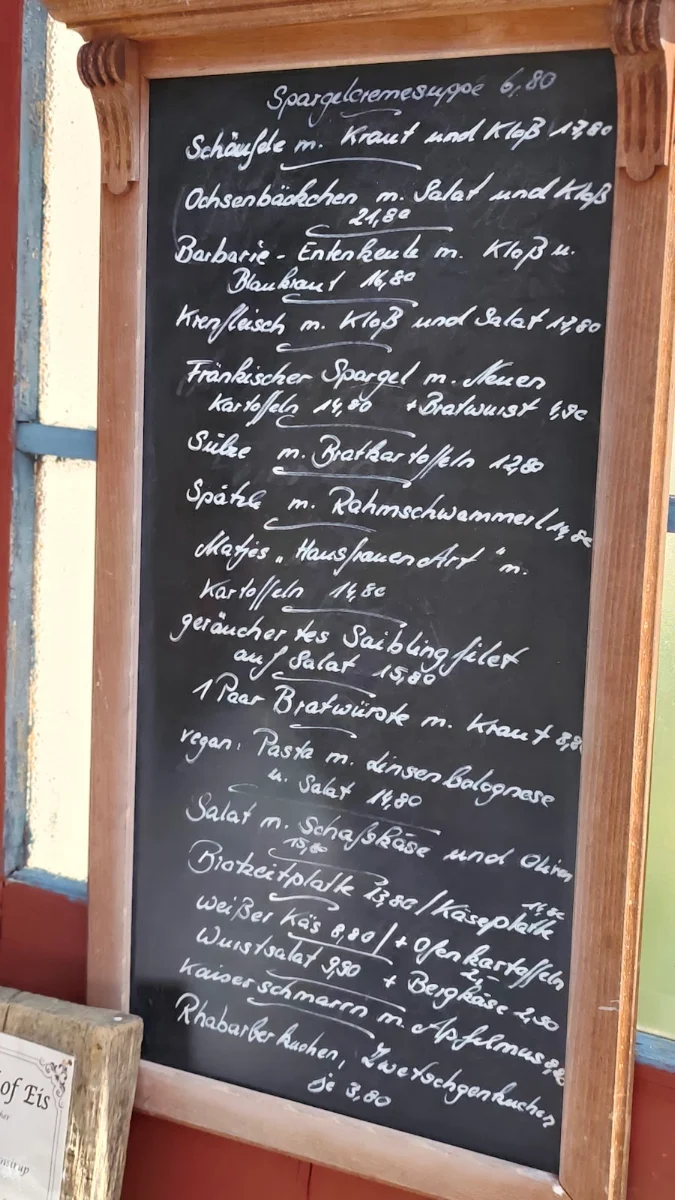 Spargelcremesuppe 6,80
Schäufele m. Kraut und Kloß 17,80
Ochsenbäckchen m. Salat und Kloß
21,80
Barbarie - Entenkeule m. Kloß u.
Blaukraut 16,80
Krenfleisch m. Kloß und Salat 17,80
Fränkischer Spargel m. Neuen
Kartoffeln 14,80 + Bratwurst 4,90
Sülze m. Bratkartoffeln 12,80
Spätzle m. Rahmschwammerl 14,80
Matjes „Hausfrauen Art" m.
Kartoffeln 14,80
geräuchertes Saiblingfilet
auf Salat 15,80
1 Paar Bratwürste m. Kraut 8,80
vegan: Pasta m. Linsenbolognese
u. Salat 14,80
Salat m. Schafskäse und Oliven
15,80
Brotzeitplatte 13,80 / Käseplatte 14,80
weißer Käs 8,80 / + Ofenkartoffeln 2,-
Wurstsalat 9,90 + Bergkäse 2,50
Kaiserschmarrn m. Apfelmus
Rhabarberkuchen, Zwetschgenkuchen
je 3,80
of Eis